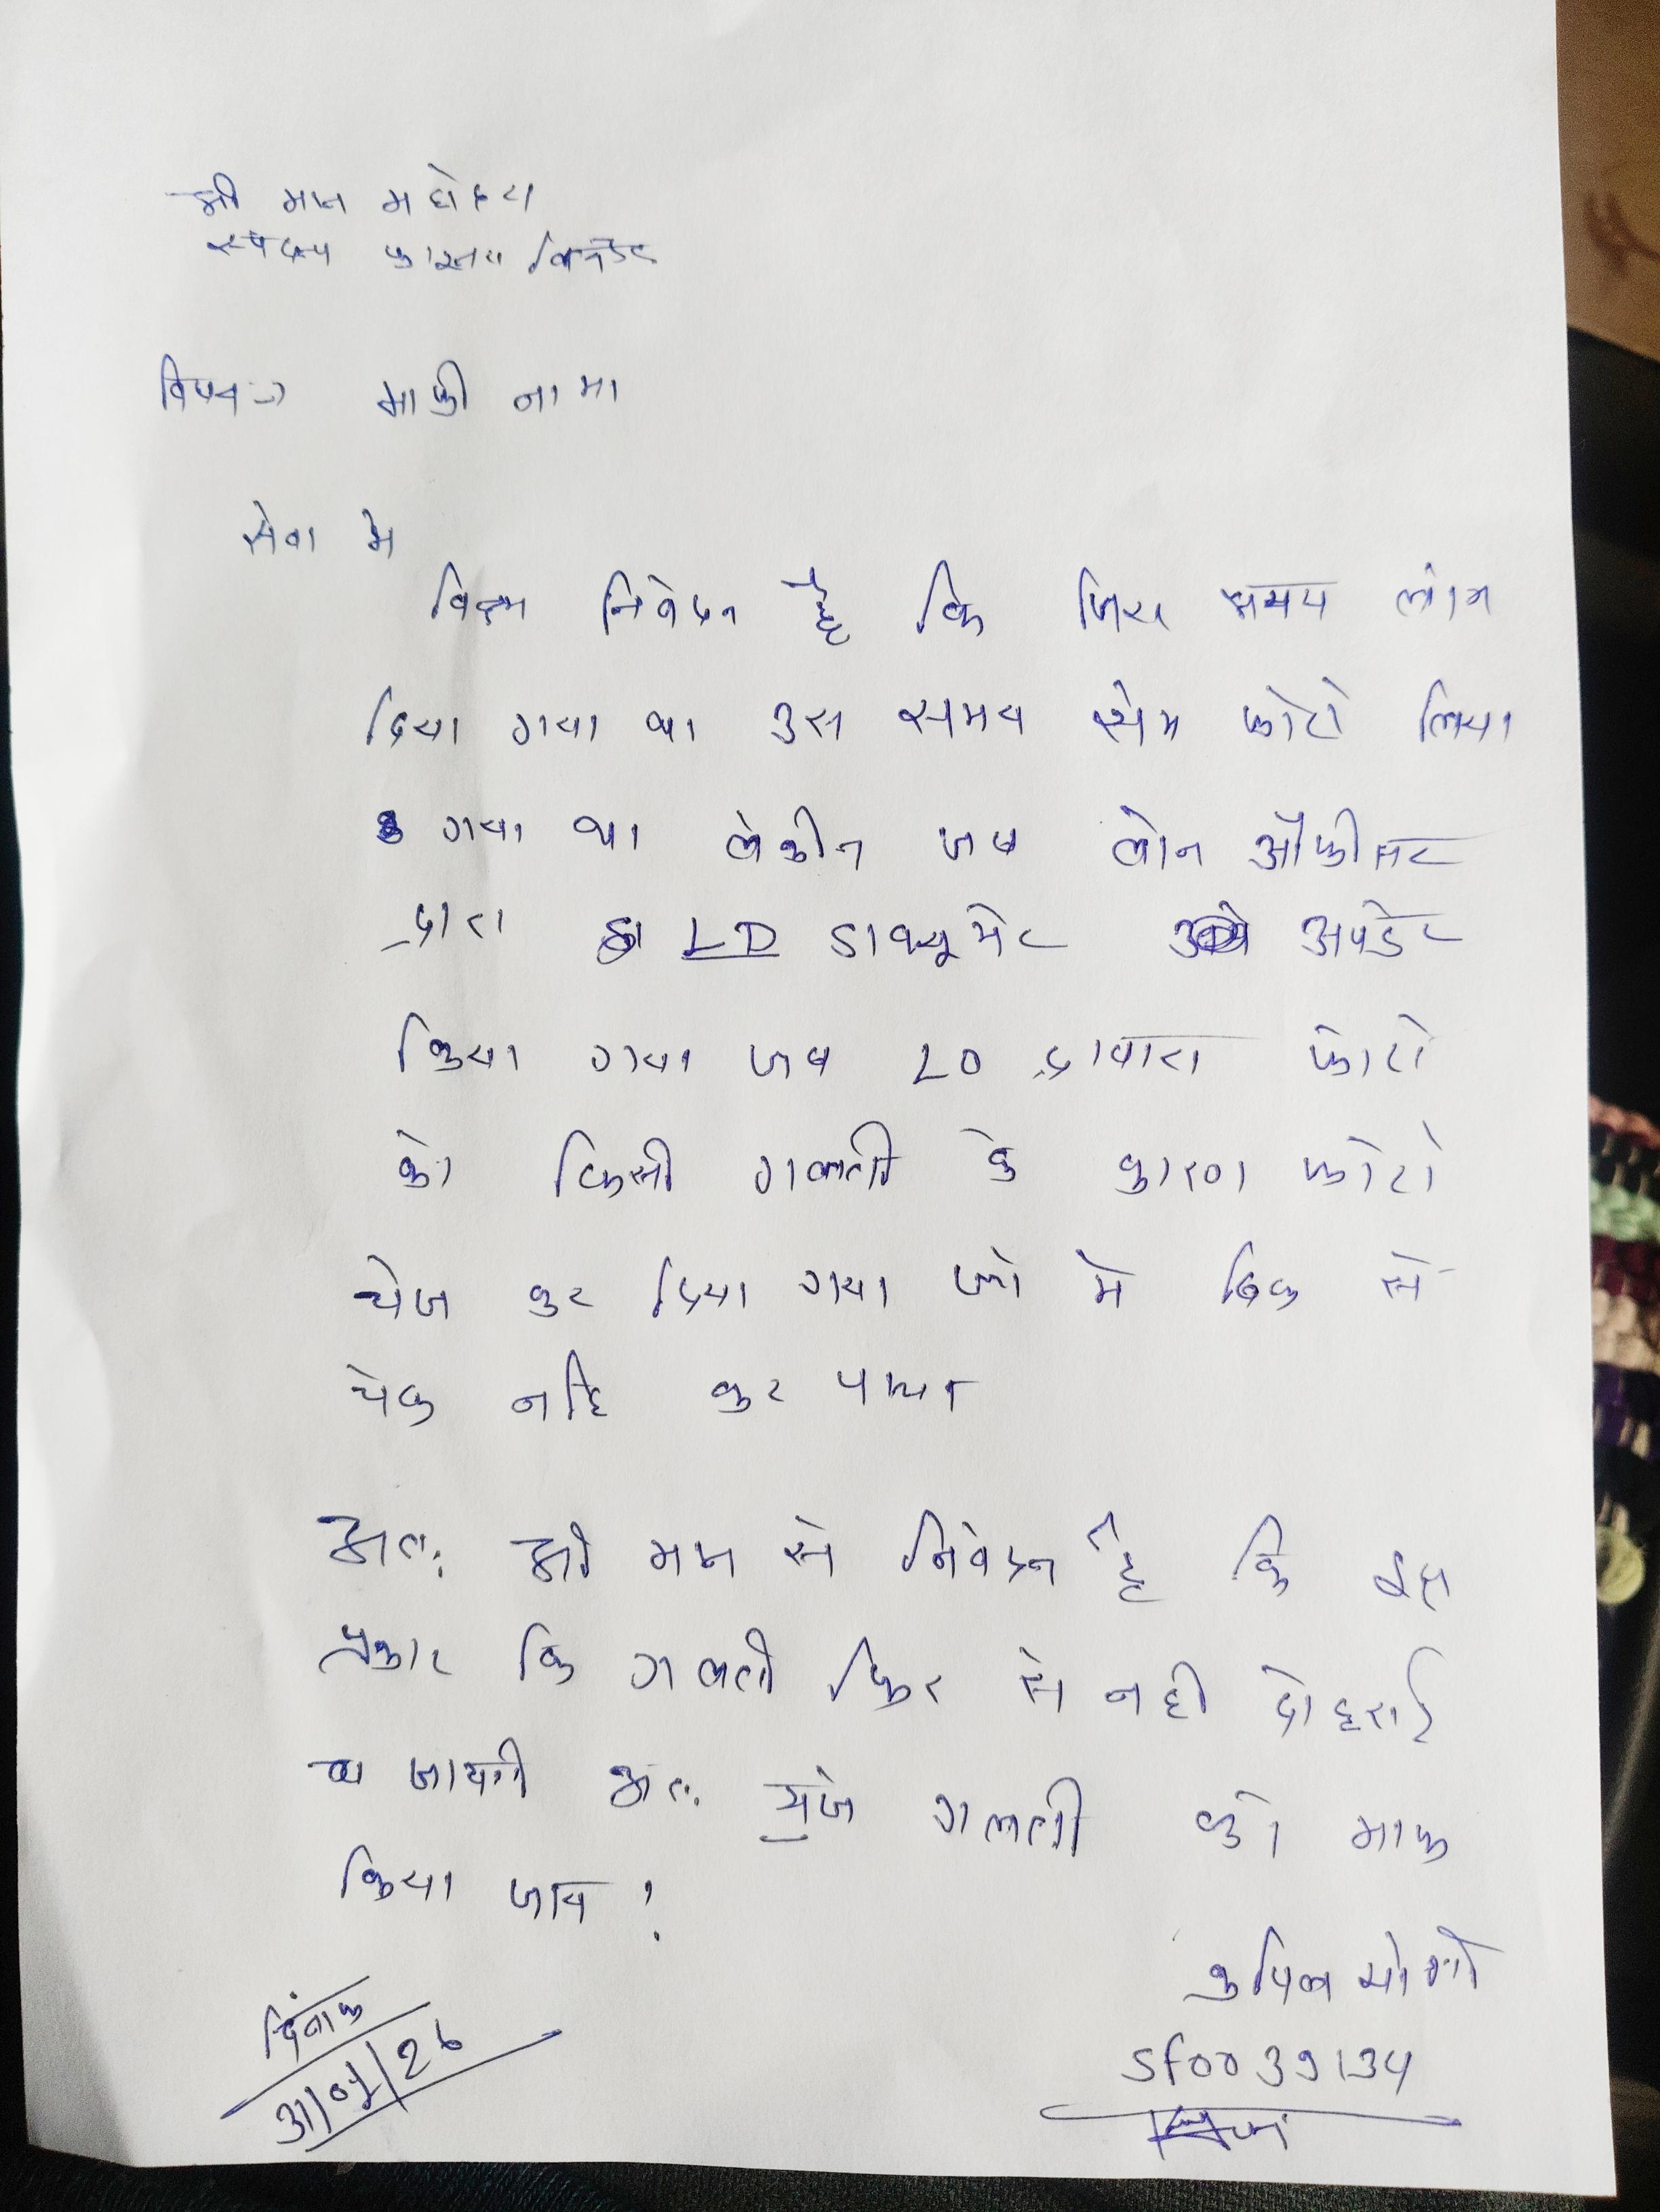 श्री मान महोदय
स्पंदना फाइनेंस लिमिटेड
विषय -> माफी नामा
सेवा मे
विनम्र निवेदन है कि जिस समय लोन
दिया गया था उस समय सेम फोटो लिया
गया था लेकीन जब लोन ऑफीसर
द्वारा LD डाक्यूमेंट अपडेट
किया गया जब LO द्वावारा फोटो
को किसी गलती के कारण फोटो
चेंज कर दिया गया जो मे ठिक से
चेक नहि कर पाया
अतः श्री मान से निवेदन है कि इस
प्रकार कि गलती फिर से नही दोहराई
जायगी अतः मुजे गलती को माफ
किया जाय !
कपिल योगी
Sf0039134
दिनांक
31/01/26